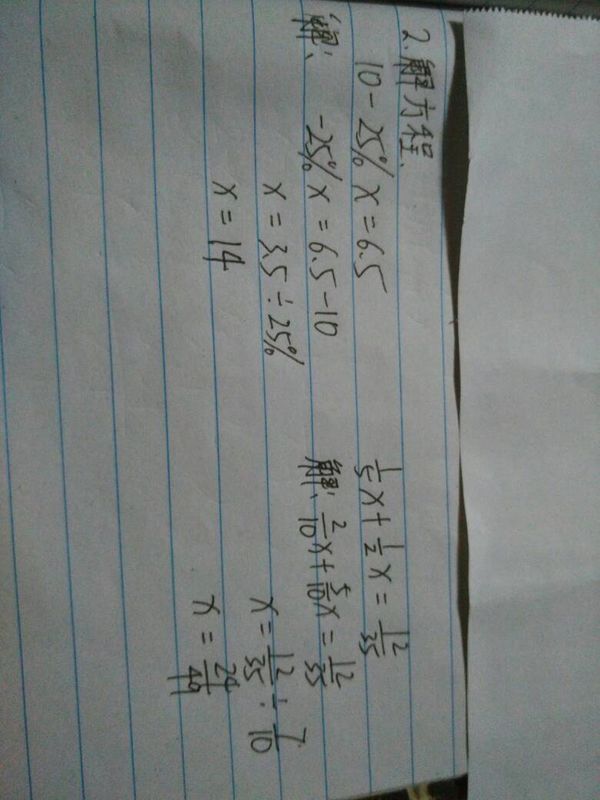 2.解方程.
10-25%x=6.5
解:
-25%x=6.5-10
x=3.5÷25%
x=14
1/5x+1/2x=12/35
解: 2/10x+5/10x=12/35
x=12/35÷7/10
x=24/49